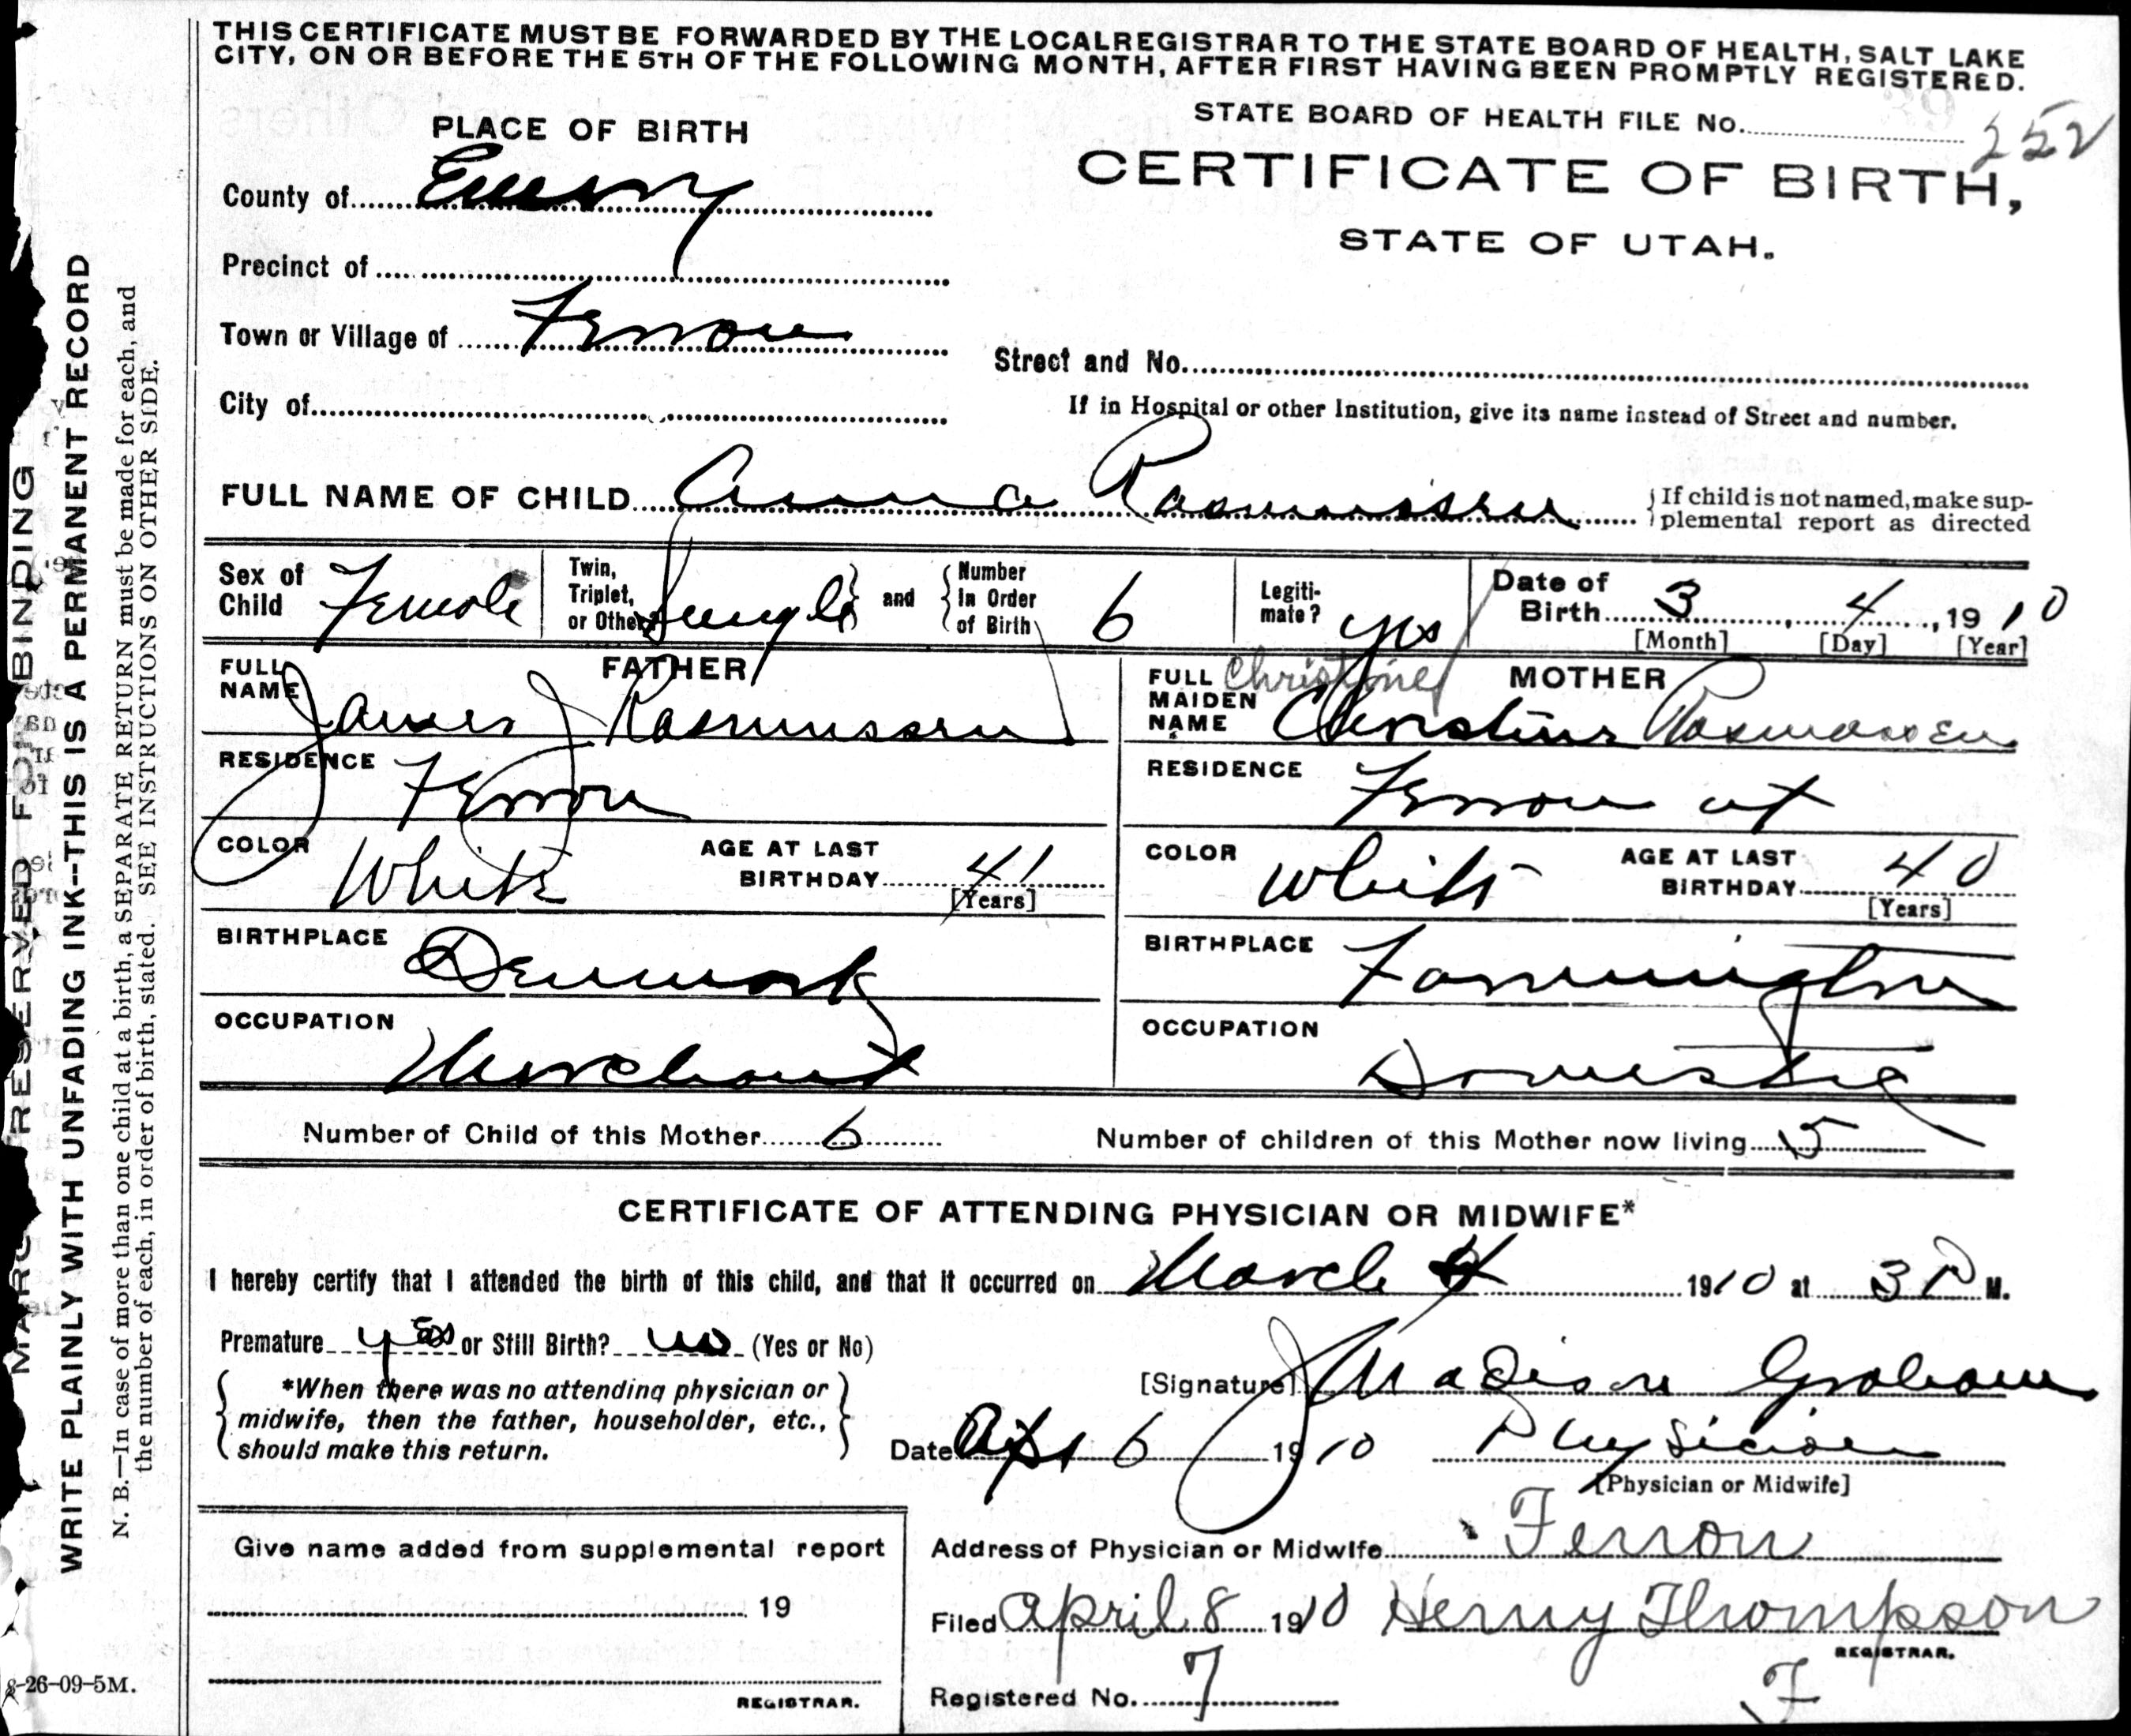 THIS CERTIFICATE MUST BE FORWARDED BY THE LOCAL REGISTRAR TO THE STATE BOARD OF HEALTH, SALT LAKE
CITY, ON OR BEFORE THE 5TH OF THE FOLLOWING MONTH, AFTER FIRST HAVING BEEN PROMPTLY REGISTERED.
STATE BOARD OF HEALTH FILE No. 252
PLACE OF BIRTH
CERTIFICATE OF BIRTH,
STATE OF UTAH.
County of Emery
Precinct of
Town or Village of Ferron
Street and No.
City of
If in Hospital or other Institution, give its name instead of Street and number.
FULL NAME OF CHILD Anna Rasmussen
If child is not named, make sup-
plemental report as directed
Sex of Child Female
Twin, Triplet, or Other Single and Number In Order of Birth 6
Legiti-mate? yes
Date of Birth 3 4, 1910
[Month] [Day] [Year]
FATHER
FULL NAME James J Rasmussen
MOTHER
FULL MAIDEN NAME Christine Christine Rasmussen
RESIDENCE Ferron
RESIDENCE Ferron ut
COLOR White
AGE AT LAST BIRTHDAY 41
[Years]
COLOR White
AGE AT LAST BIRTHDAY 40
[Years]
BIRTHPLACE Denmark
BIRTHPLACE Farmington
OCCUPATION Merchant
OCCUPATION Domestic
Number of Child of this Mother 6
Number of children of this Mother now living 5
CERTIFICATE OF ATTENDING PHYSICIAN OR MIDWIFE*
I hereby certify that I attended the birth of this child, and that it occurred on March 4 1910 at 3 P M.
Premature yes or Still Birth? no (Yes or No)
*When there was no attending physician or
midwife, then the father, householder, etc.,
should make this return.
[Signature] J Madison Graham
Date Apr 6 1910 Physician
[Physician or Midwife]
Give name added from supplemental report
19
REGISTRAR.
Address of Physician or Midwife Ferron
Filed April 8 1910 Henry Thompson
REGISTRAR.
Registered No. 7
F
8-26-09-5M.
MARGIN RESERVED FOR BINDING
WRITE PLAINLY WITH UNFADING INK--THIS IS A PERMANENT RECORD
N. B.—In case of more than one child at a birth, a SEPARATE RETURN must be made for each, and
the number of each, in order of birth, stated. SEE INSTRUCTIONS ON OTHER SIDE.